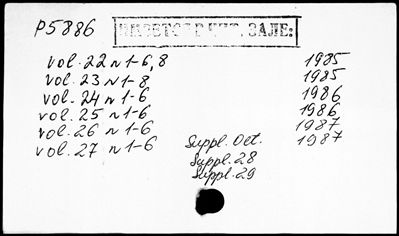 P5886
ИМЕЕТСЯ В ЧИТ. ЗАЛЕ:
vol. 22 n 1-6, 8 1985
vol. 23 n 1-8 1985
vol. 24 n 1-6 1986
vol. 25 n 1-6 1986
vol. 26 n 1-6 1987
vol. 27 n 1-6 Suppl. Oct. 1987
Suppl. 28
Suppl. 29